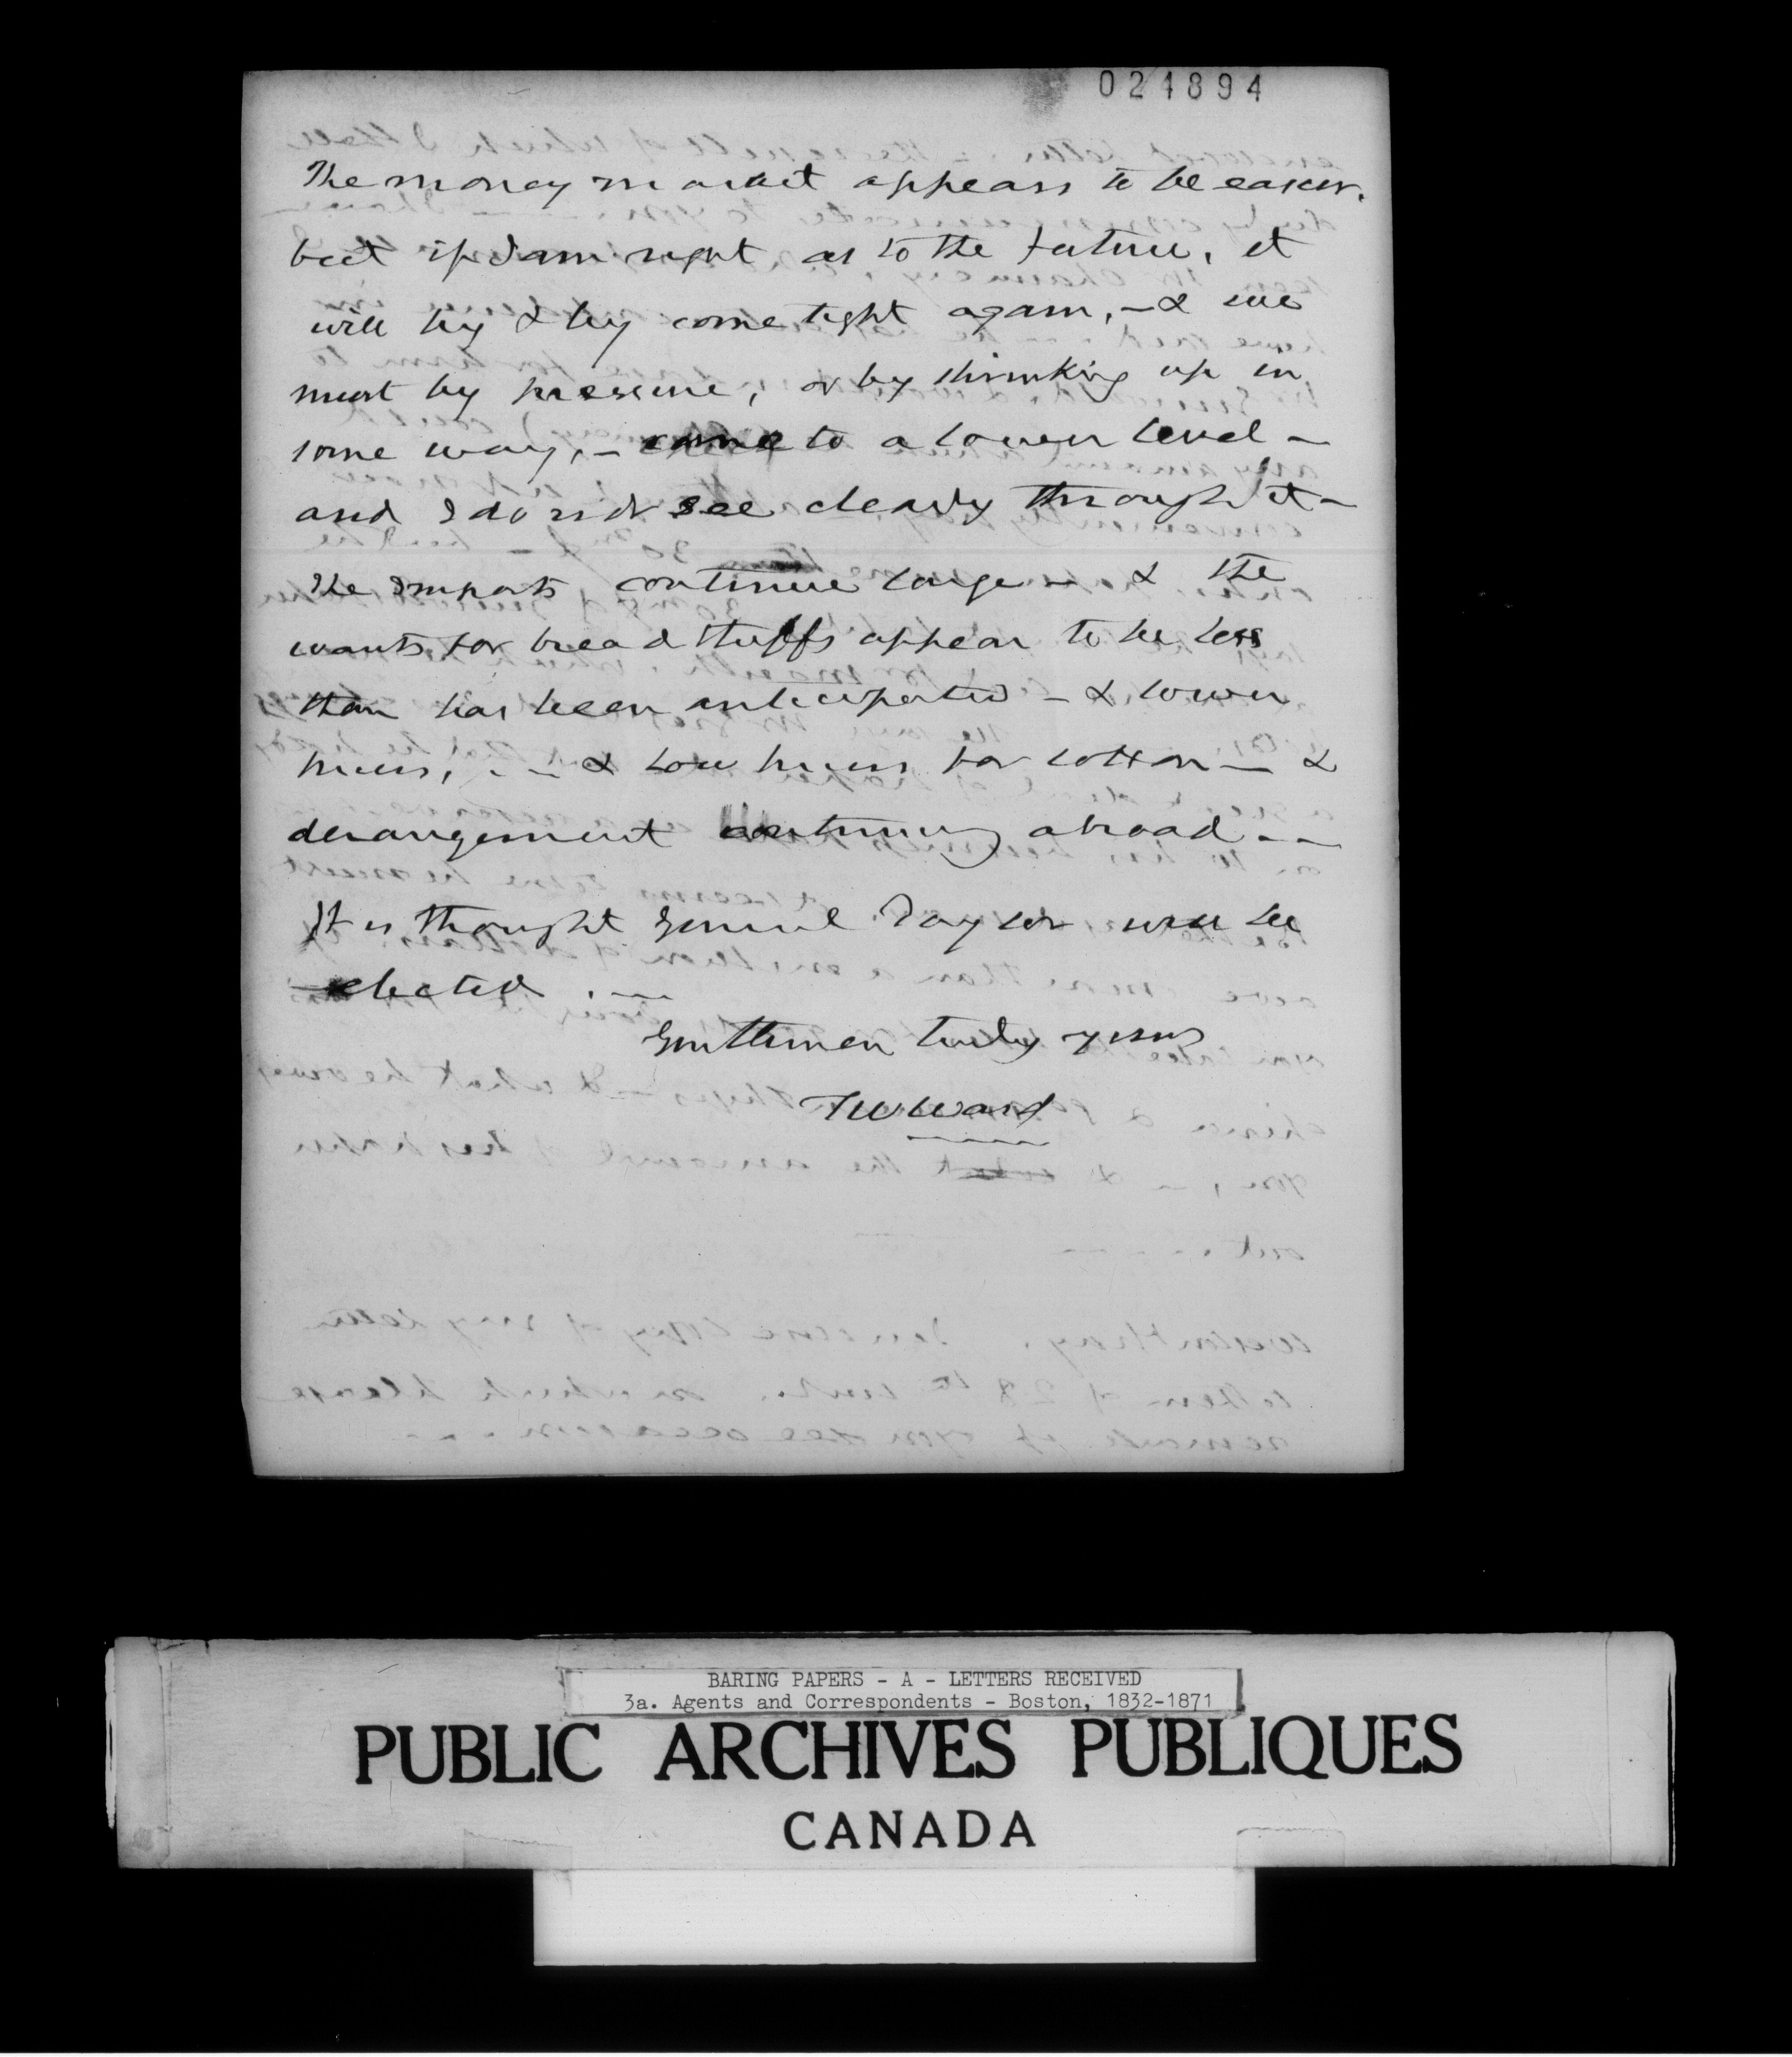 024894
The money market appears to be easier,
but if I am right as to the future, it
will by & by come tight again, — & we
must by pressure, or by shrinking up in
some way, — come to a lower level —
and I do not see clearly through it —
The Imports continue large — & the
wants for breadstuffs appear to be less
than has been anticipated — & lower
prices, . — & low prices for cotton — & 
derangement continuing abroad — —
It is thought General Taylor will be
elected . —
Gentlemen truly yours
TWWard
BARING PAPERS - A - LETTERS RECEIVED
3a. Agents and Correspondents - Boston, 1832-1871
PUBLIC ARCHIVES PUBLIQUES
CANADA